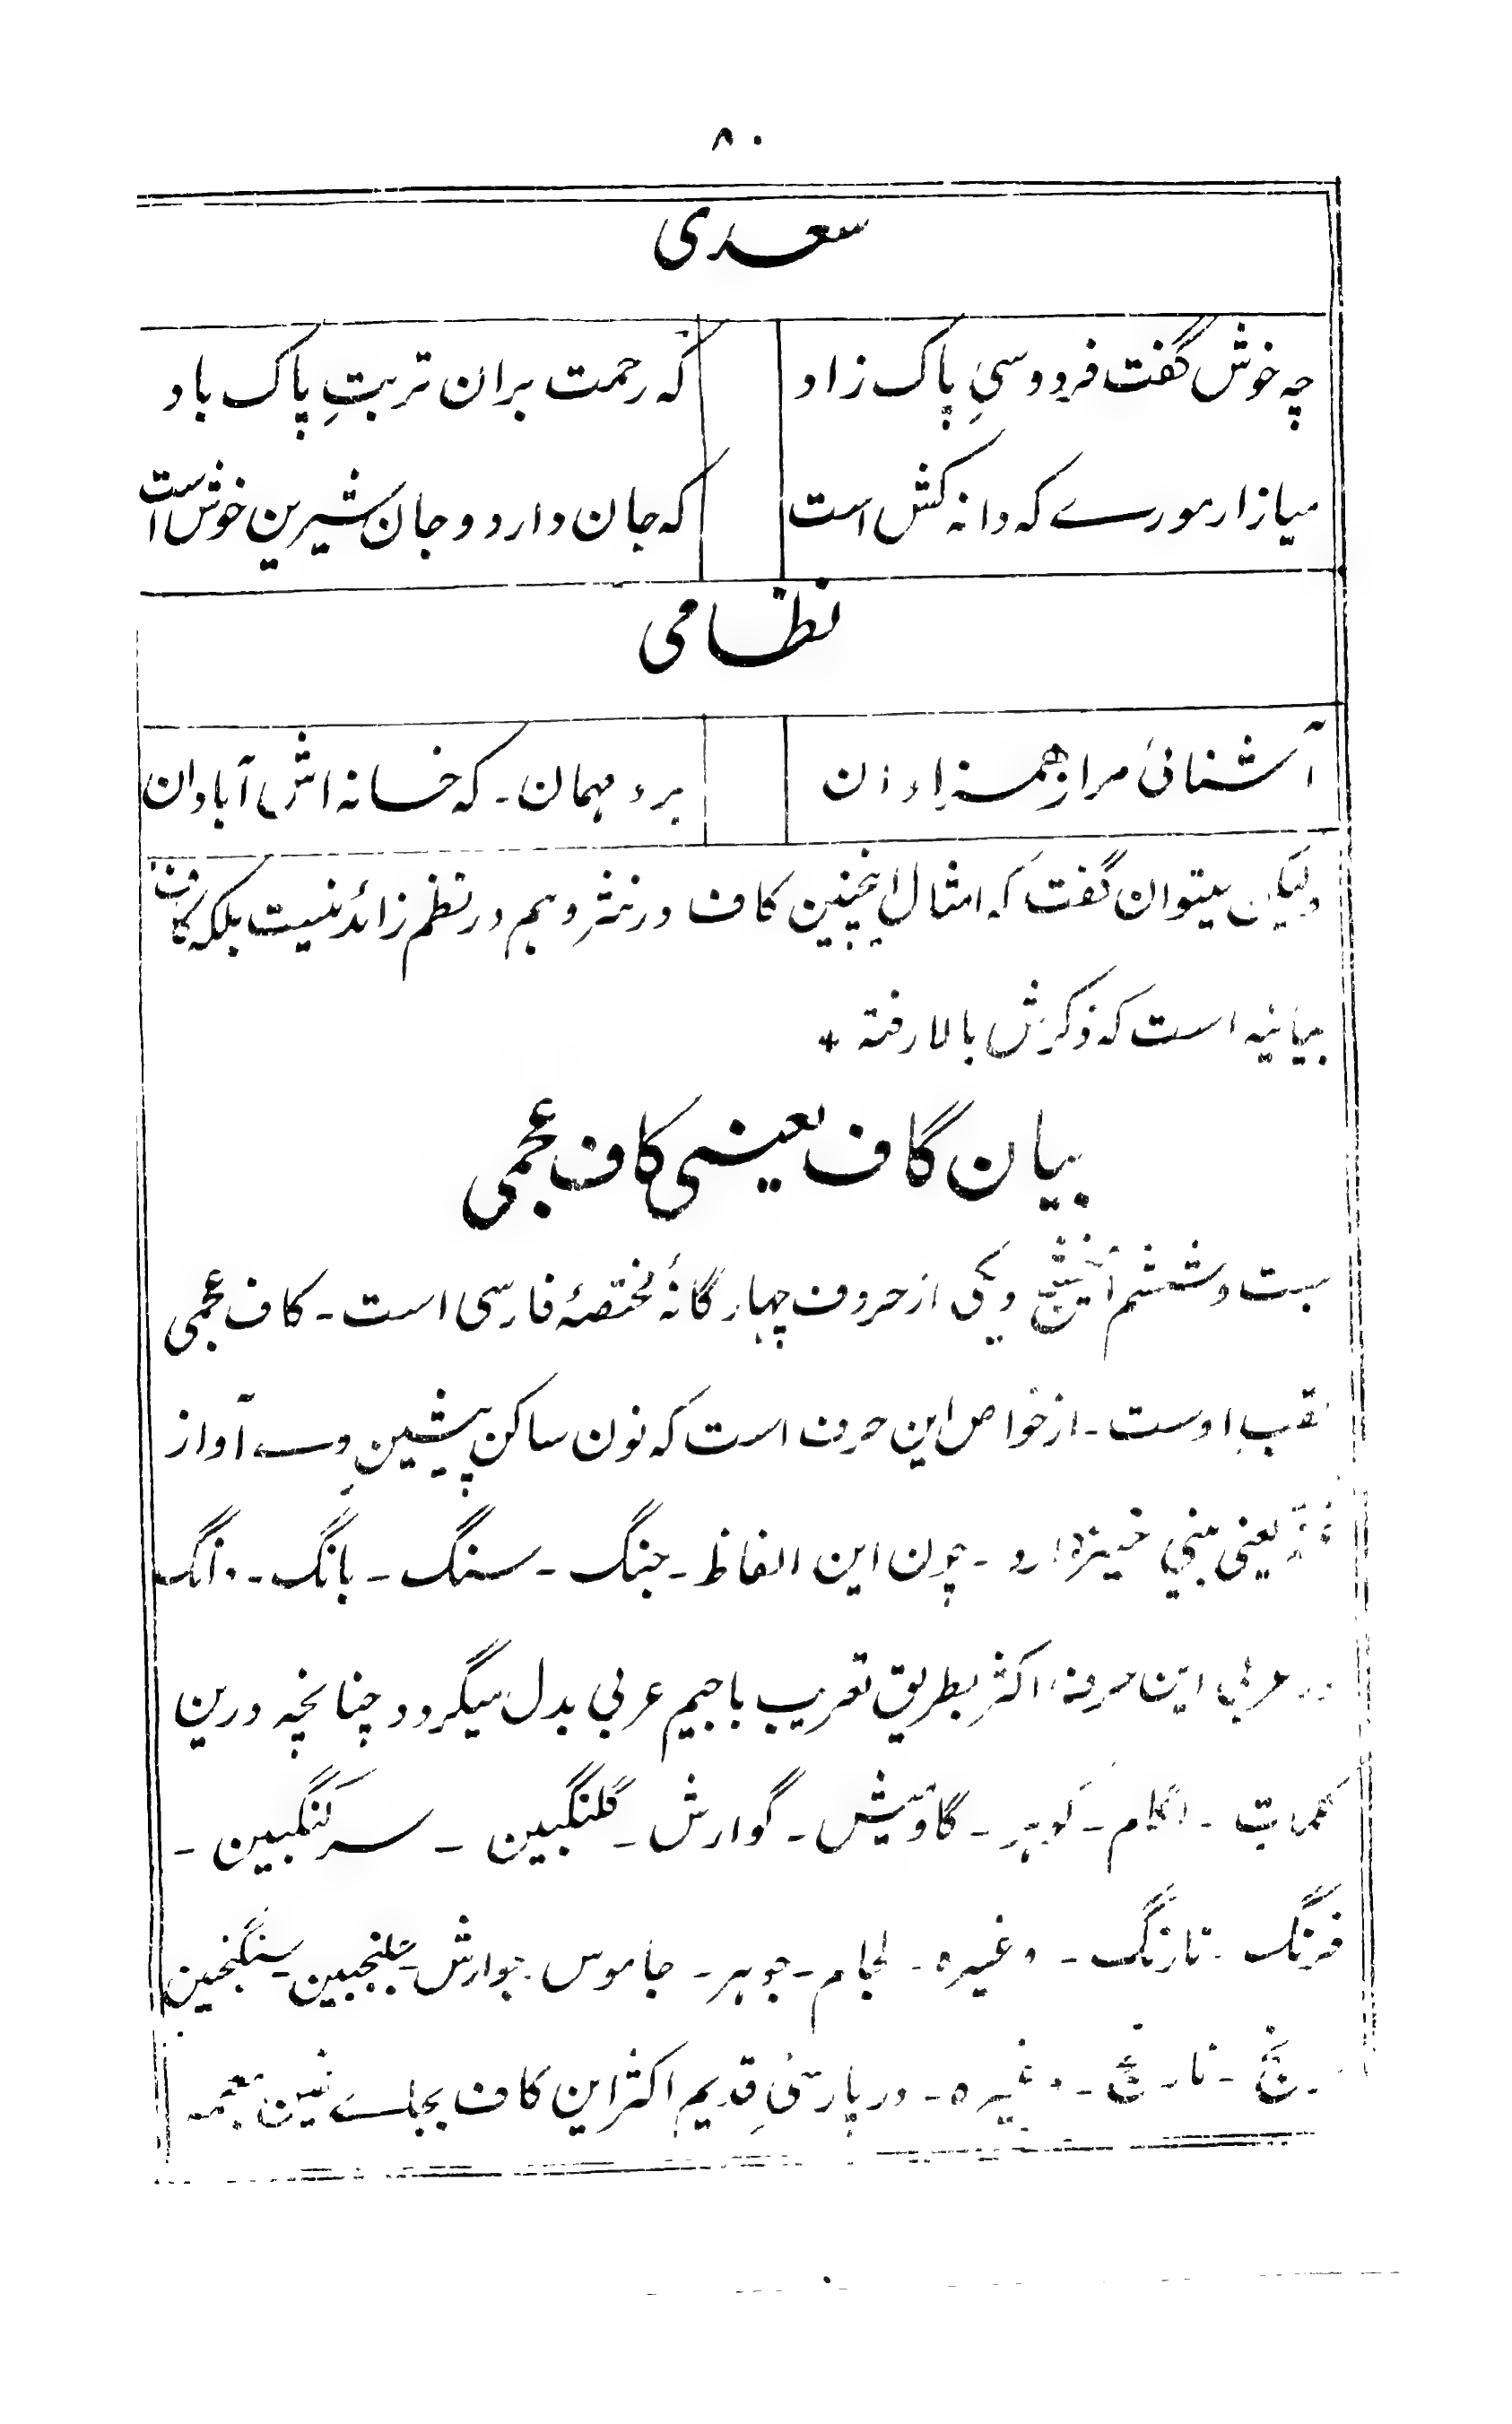 ۸۰
سعدی
چه خوش گفت فردوسیِ پاک زاد که رحمت بران تربتِ پاک باد
میازار مورے که دانه کش است که جان دارد و جان شیرین خوش است
نظامی
آشنائی مرا ز همزادان برد مهمان - که خانه اش آبادان
ولیکن میتوان گفت که امثال اینچنین کاف در نثر و هم در نظم زائد نیست بلکه کاف
بیانیه است که ذکرش بالا رفته +
بیان گاف یعنی کاف عجمی
بست و ششم و یکی از حروف چهار گانۀ مختصۀ فارسی است - کاف عجمی
لقبِ اوست - از خواص این حرف است که نون ساکن پیشینِ وے آواز
یعنی بینی خیز دارد - چون این الفاظ - جنگ - سنگ - بانگ - دانگ
در عربی این حرف اکثر بطریق تعریب با جیم عربی بدل میگردد چنانچه درین
کلمات - لگام - گوهر - گاومیش - گوارش - گلنگبین - سرکنگبین -
فرنگ - نارنگ - وغیره - لجام - جوهر - جاموس - جوارش - جلنجبین - سکنجبین
نارنج - وغیره - در پارسیِ قدیم اکثر این کاف بجاے غین معجمه